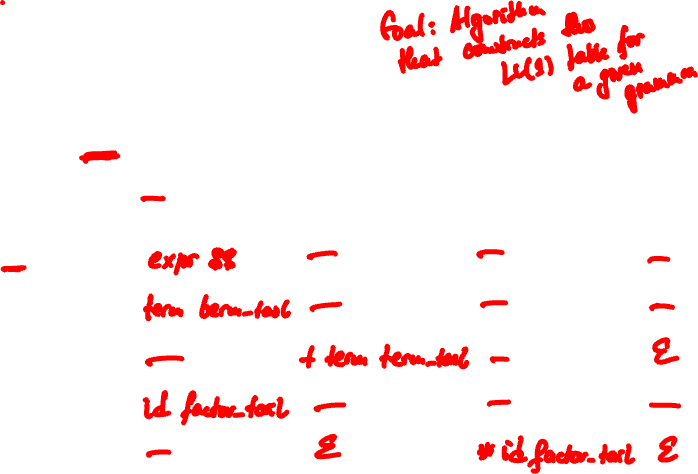 Goal: Algorithm
that constructs the
LL(1) table for
a given
grammar
—
—
— expr $$ — — —
term term_tail — — —
— + term term_tail — ε
id factor_tail — — —
— ε * id factor_tail ε